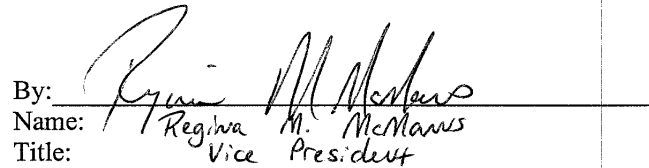 By: Regina M McManus
Name: Regina M. McManus
Title: Vice President